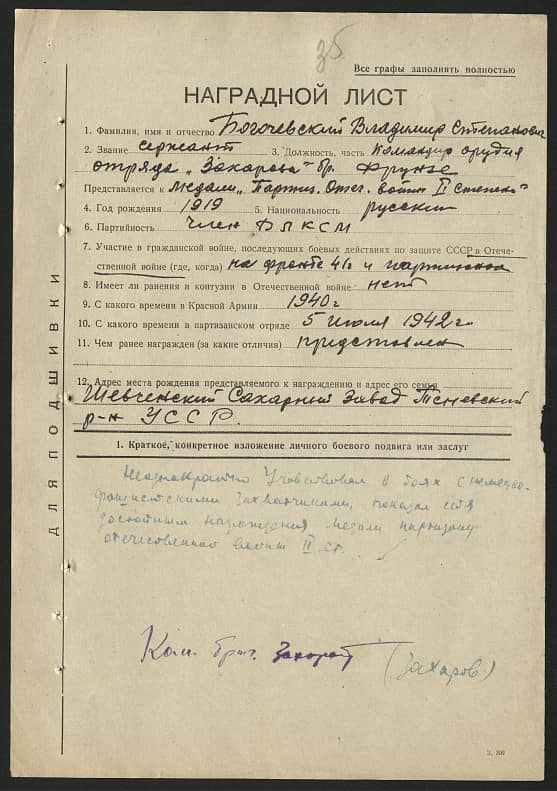 35
Все графы заполнять полностью
НАГРАДНОЙ ЛИСТ
1. Фамилия, имя и отчество Богочевский Владимир Степанович
2. Звание сержант 3. Должность, часть Командир орудия
отряда „Захарова" бр. Фрунзе
Представляется к медали „Партиз. Отеч. войны II степени"
4. Год рождения 1919 5. Национальность русский
6. Партийность член ВЛКСМ
7. Участие в гражданской войне, последующих боевых действиях по защите СССР в Отече-
ственной войне (где, когда) на фронте 41г и
8. Имеет ли ранения и контузии в Отечественной войне нет
9. С какого времени в Красной Армии 1940г
10. С какого времени в партизанском отряде 5 июля 1942г.
11. Чем ранее награжден (за какие отличия) представлен
12. Адрес места рождения представляемого к награждению и адрес его семьи
Шевченский Сахарный Завод
р-н УССР.
1. Краткое, конкретное изложение личного боевого подвига или заслуг
Неоднократно Участвовал в боях с немецко-
фашистскими захватчиками, показал себя
достойным награждения медали партизану
отечественной войны II ст.
Ком. бриг.
(Захаров)
ДЛЯ ПОДШИВКИ